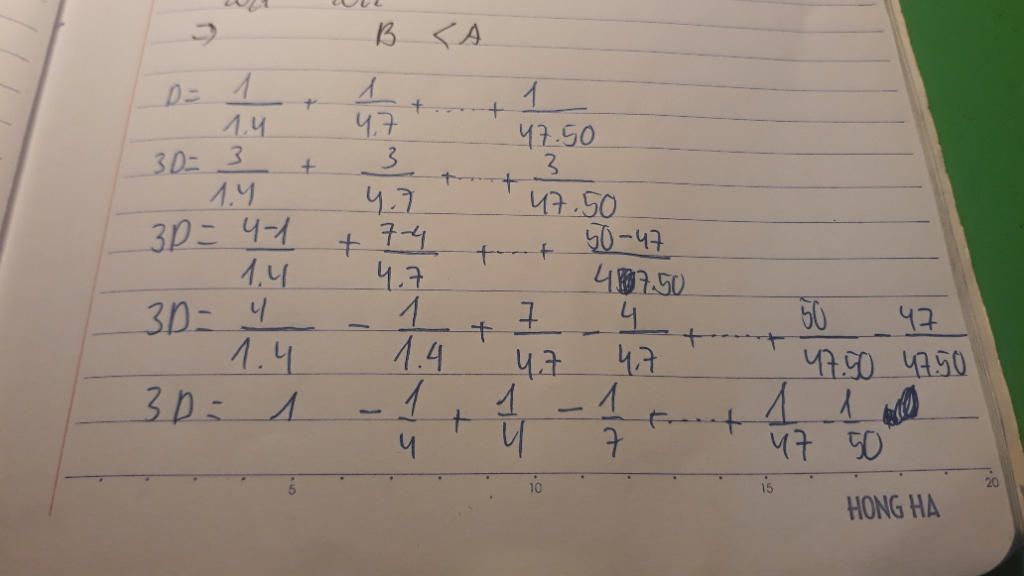 ⇒ B < A
D = 1/1.4 + 1/4.7 + ..... + 1/47.50
3D = 3/1.4 + 3/4.7 + ..... + 3/47.50
3D = 4-1/1.4 + 7-4/4.7 + ..... + 50-47/47.50
3D = 4/1.4 - 1/1.4 + 7/4.7 - 4/4.7 + ..... + 50/47.50 - 47/47.50
3D = 1 - 1/4 + 1/4 - 1/7 + ..... + 1/47 - 1/50
5 10 15 20
HONG HA